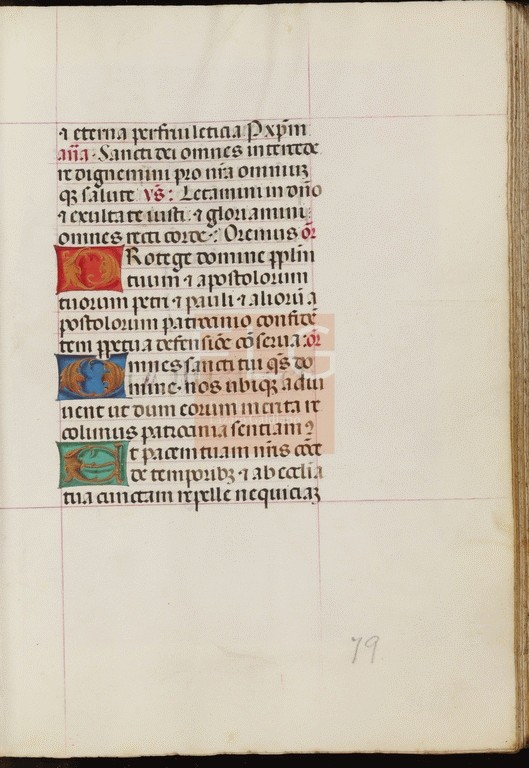 ⁊ eterna perfrui leticia P xp̄m
an̄a · Sancti dei omnes intercede
re dignemini pro nr̄a omniuꝫ
qꝫ salute vs̄: Letamini in dn̄o
⁊ exultate iusti · ⁊ gloriamini
omnes recti corde : Oremus or̄
Rotege domine pplm̄
tuum ⁊ apostolorum
tuorum petri ⁊ pauli ⁊ alioruꝫ a
postolorum patrocinio confidē
tem ppetua defensiōe cōserua: or̄
Omnes sancti tui qs̄ do
mine · nos ubiqꝫ adiu
uent ut dum eorum merita re
colimus patrocinia sentiam⁹
Et pacem tuam nr̄is cōce
de temporibꝫ ⁊ ab ecclīa
tua cunctam repelle nequiciaꝫ
79
FLG